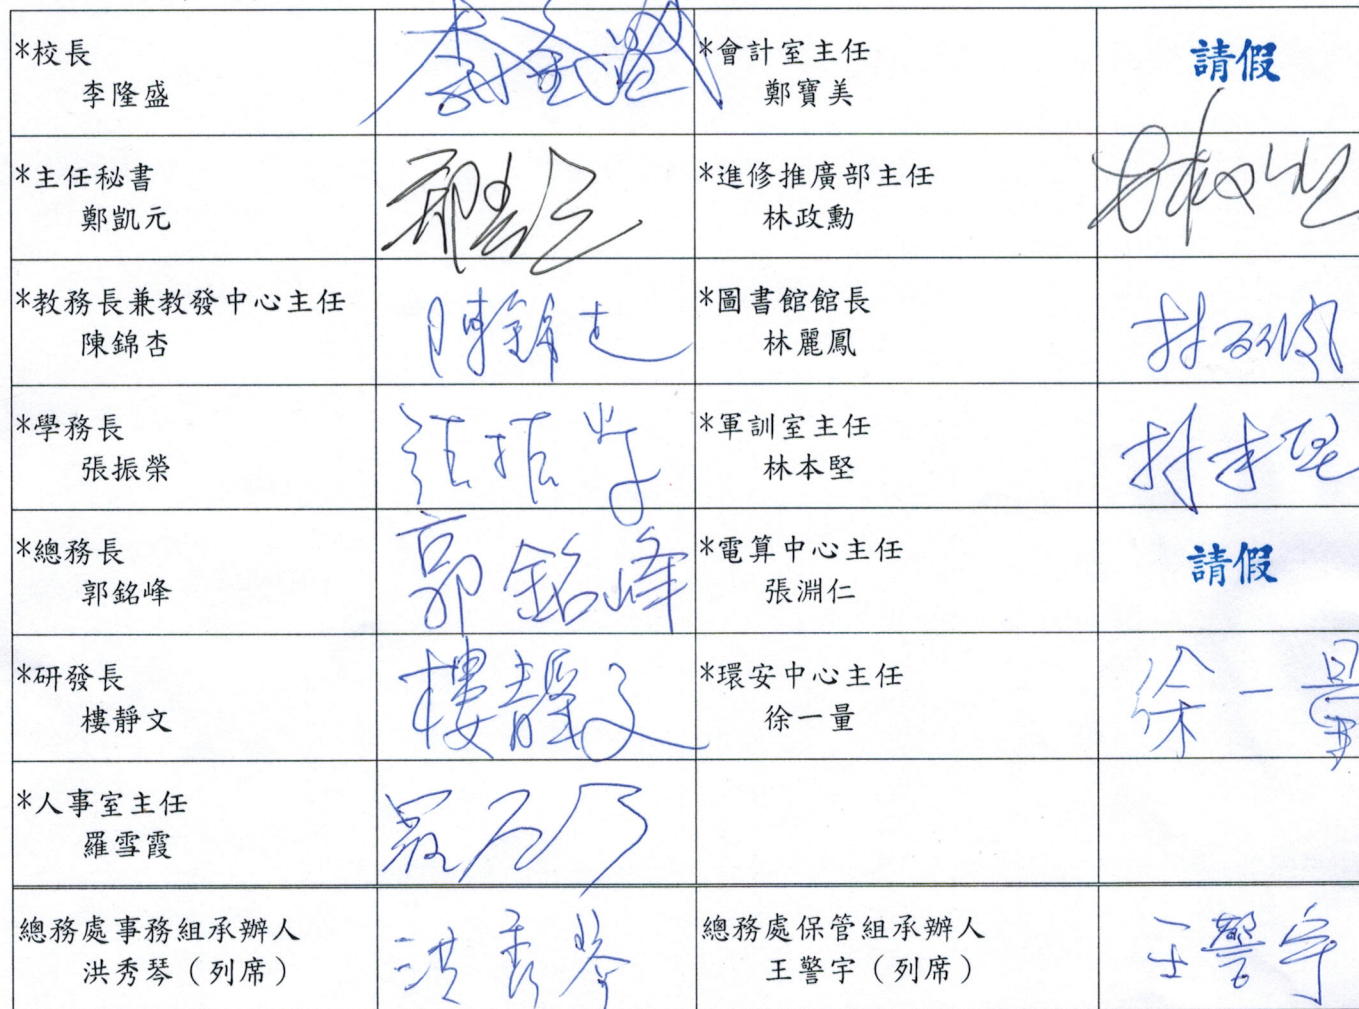 *校長
李隆盛
李隆盛
*會計室主任
鄭寶美
請假
*主任秘書
鄭凱元
*進修推廣部主任
林政勳
*教務長兼教發中心主任
陳錦杏
陳錦杏
*圖書館館長
林麗鳳
林麗鳳
*學務長
張振榮
張振榮
*軍訓室主任
林本堅
林本堅
*總務長
郭銘峰
郭銘峰
*電算中心主任
張淵仁
請假
*研發長
樓靜文
樓靜文
*環安中心主任
徐一量
徐一量
*人事室主任
羅雪霞
總務處事務組承辦人
洪秀琴（列席）
洪秀琴
總務處保管組承辦人
王警宇（列席）
王警宇